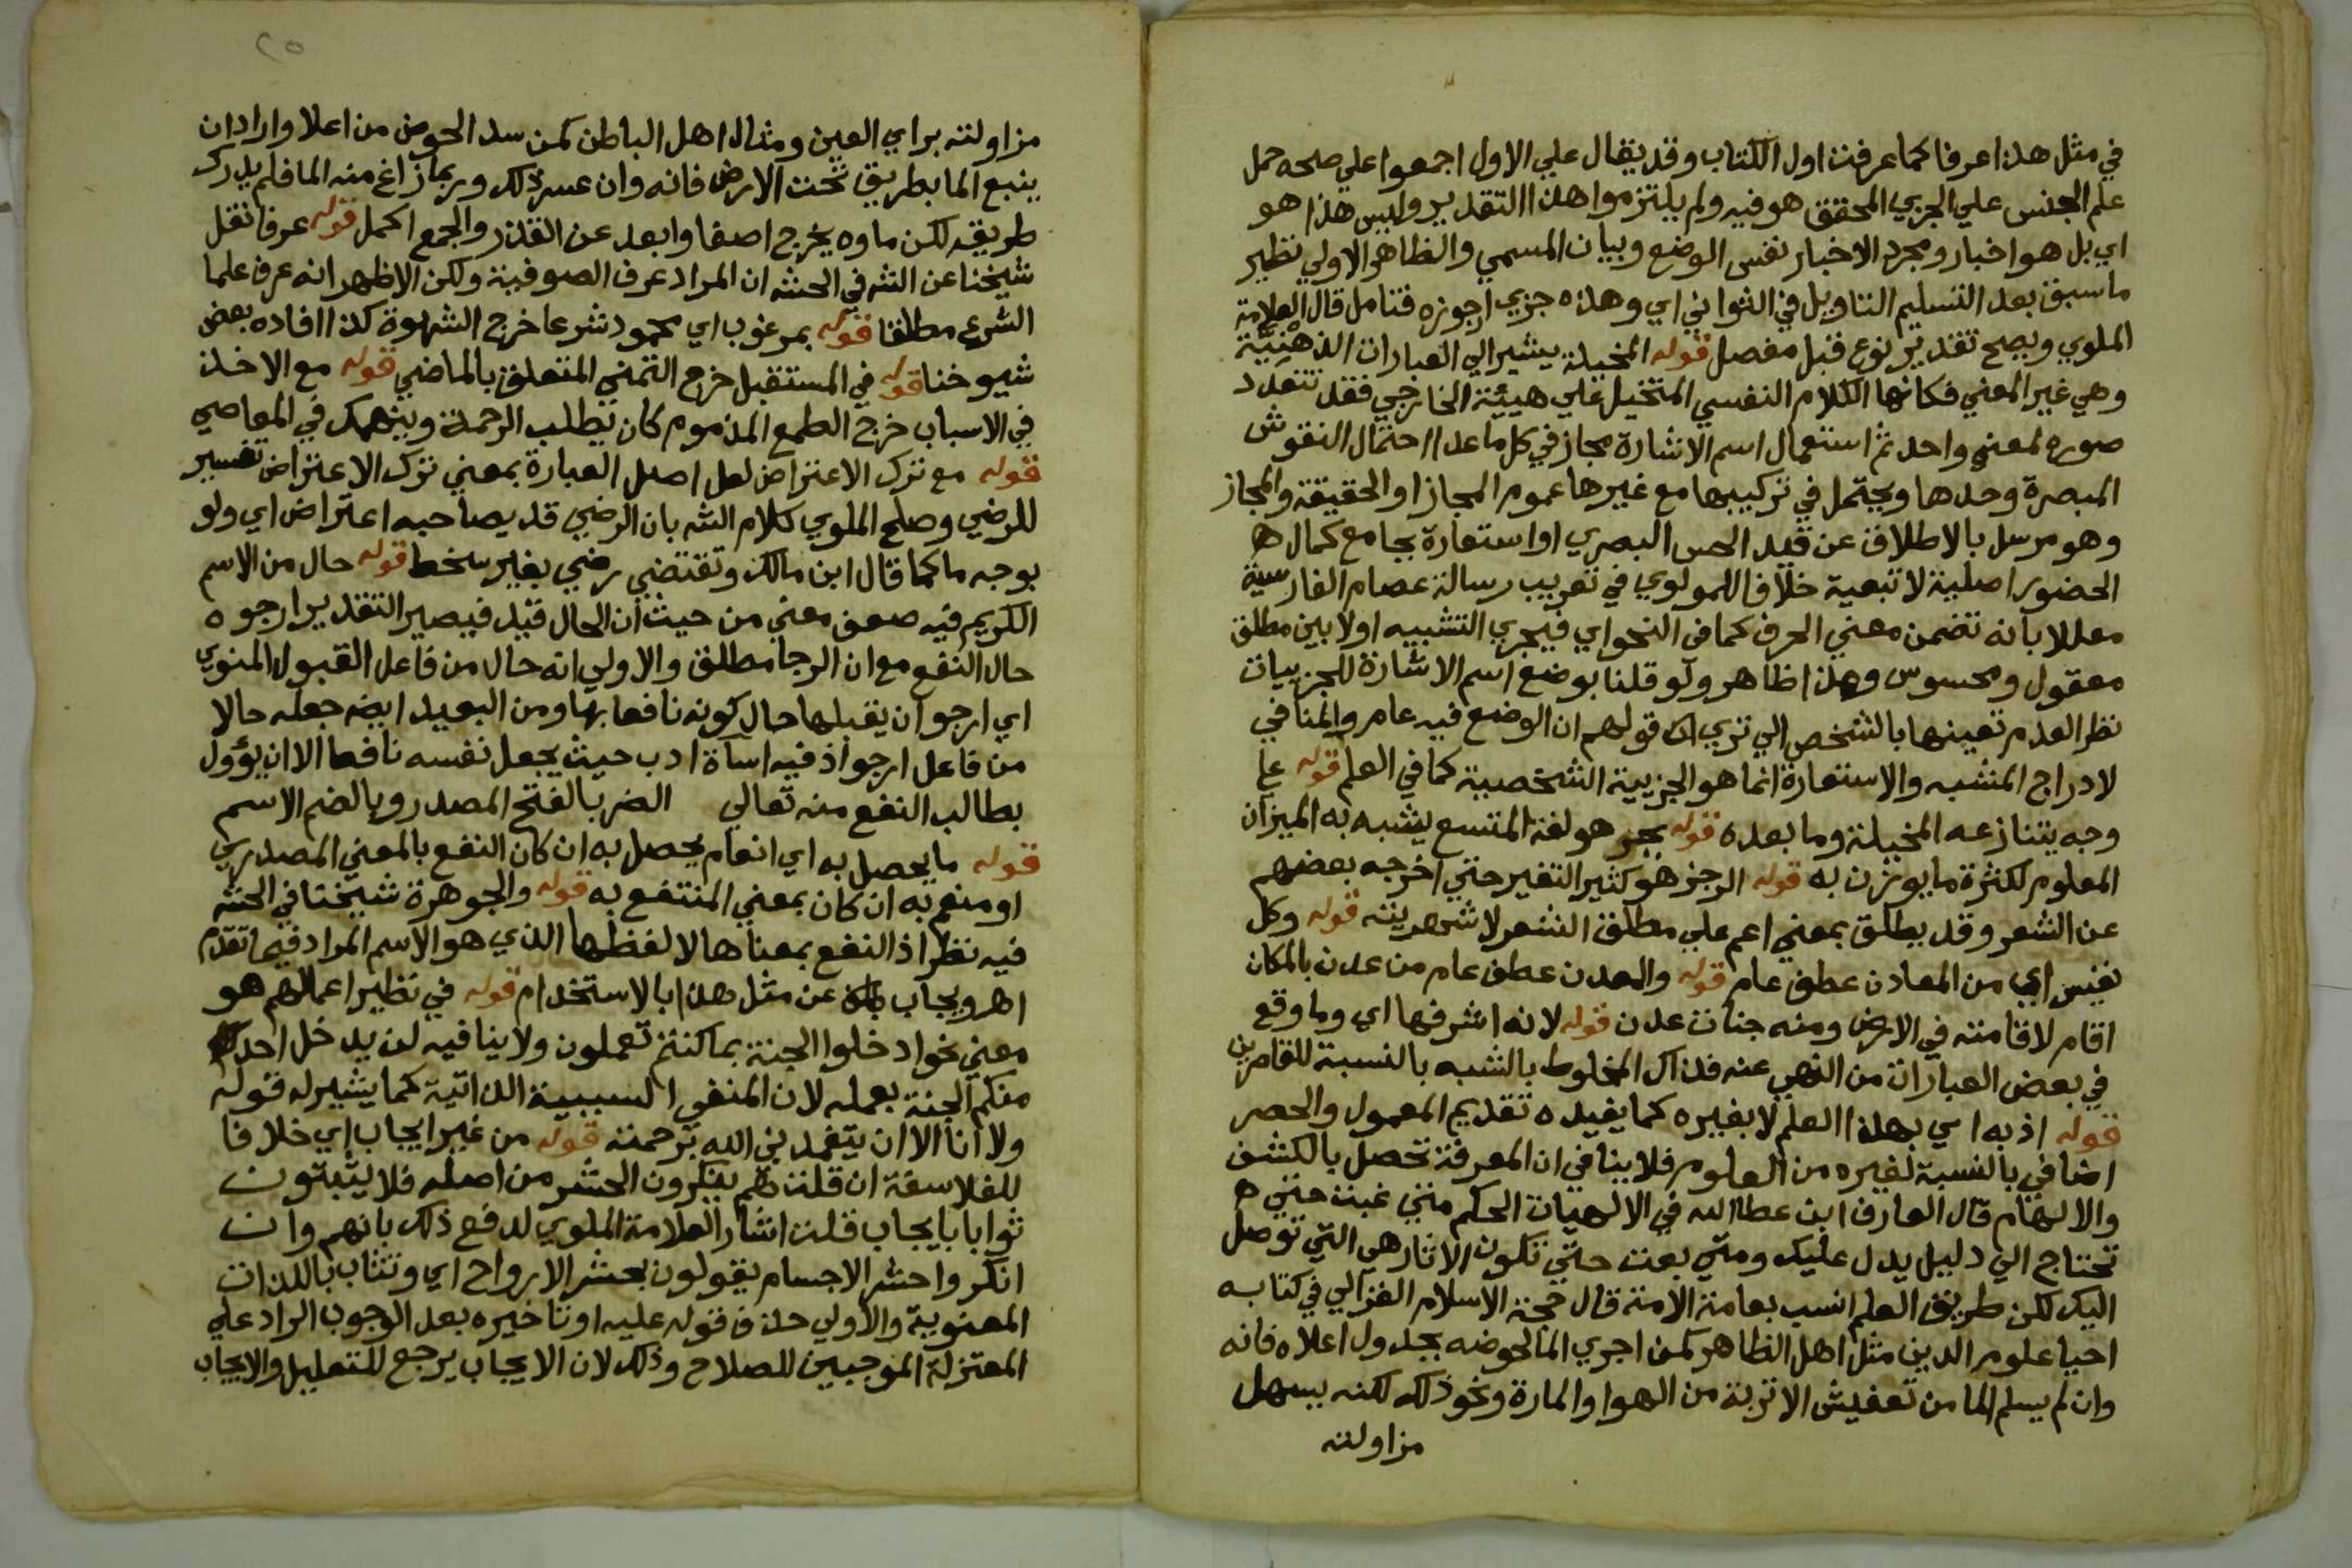 في مثل هذا عرفا كما عرفت اول الكتاب وقد يقال علي الاول اجمعوا علي صحه حمل
علم الجنس علي الجزيي المحقق هو فيه ولم يلتزموا هذا التقدير وليس هذا هو
اي بل هو اخبار ومجرد الاخبار نفس الوضع وبيان المسمي والظاهر الاولي نظير
ما سبق بعد التسليم التاويل في الثواني اي وهذه جزيي ارجوزه فتامل قال العلامة
الملوي ويصح تقدير نوع قبل مفصل قوله المخيلة يشير الي العبارات الذهنية
وهي غير المعني فكانها الكلام النفسي المتخيل علي هيئة الخارجي فقد تتعدد
صوره لمعني واحد ثم استعمال اسم الاشارة مجاز في كل ما عدا احتمال النقوش
المبصرة وحدها ويحتمل في تركيبها مع غيرها عموم المجاز او الحقيقة والمجاز
وهو مرسل بالاطلاق عن قيد الحس البصري او استعارة بجامع كمال ه
الحضور اصلية لا تبعية خلافا للمولوي في تعريب رسالة عصام الفارسية
معللا بانه تضمن معني الحرف كما في النحو اي فيجري التشبيه اولا بين مطلق
معقول ومحسوس وهذا ظاهر ولو قلنا بوضع اسم الاشارة للجزييات
نظر العدم تعينها بالشخص الي تري ان قولهم ان الوضع فيه عام والمنافي
لادراج المشبه والاستعارة انما هو الجزيية الشخصية كما في العلم قوله علي
وجه يتنازعه المخيلة وما بعده قوله بحر هو لغة المتسع يشبه به الميزان
المعلوم لكثرة ما يوزن به قوله الرجز هو كثير التغير حتي اخرجه بعضهم
عن الشعر وقد يطلق بمعني اعم علي مطلق الشعر لا شهريته قوله وكل
نفيس اي من المعادن عطف عام قوله والعدن عطف عام من عدن بالمكان
اقام لاقامته في الارض ومنه جنات عدن قوله لانه اشرفها اي وما وقع
في بعض العبارات من النهي عنه فذاك المخلوط بالشبه بالنسبة للقاصرين
قوله اذ به اي بهذا العلم لا بغيره كما يفيده تقديم المعمول والحصر
اضافي بالنسبة لغيره من العلوم فلا ينافي ان المعرفة تحصل بالكشف
والالهام قال العارف ابن عطا الله في الالهيات الحكم متي غبت حتي ه
تحتاج الي دليل يدل عليك ومتي بعدت حتي تكون الاثار هي التي توصل
اليك لكن طريق العلم انسب بعامة الامة قال حجة الاسلام الغزالي في كتابه
احيا علوم الدين مثل اهل الظاهر كمن اجري الما لحوضه بجدول اعلاه فانه
وان لم يسلم الما من تعفيش الاتربة من الهوا والمارة ونحو ذلك لكنه يسهل
مزاولته
مزاولته براي العين ومثال اهل الباطن كمن سد الحوض من اعلا واراد ان
ينبع الما بطريق تحت الارض فانه وان عسر ذلك وربما زاغ منه الما فلم يدرك
طريقه لكن ماوه يخرج اصفا وابعد عن القذر والجمع اكمل قوله عرفا نقل
شيخنا عن الشه في الحشه ان المراد عرف الصوفية ولكن الاظهر انه عرف علما
الشرع مطلقا قوله بمرغوب اي محمود شرعا خرج الشهوة كذا افاده بعض
شيوخنا قوله في المستقبل خرج التمني المتعلق بالماضي قوله مع الاخذ
في الاسباب خرج الطمع المذموم كان يطلب الرحمة وينهمك في المعاصي
قوله مع ترك الاعتراض لعل اصل العبارة بمعني ترك الاعتراض تفسير
للرضي وصلح الملوي كلام الشه بان الرضي قد يصاحبه اعتراض اي ولو
بوجه ما كما قال ابن مالك وتقتضي رضي بغير سخط قوله حال من الاسم
الكريم فيه ضعف معني من حيث ان الحال قيد فيصير التقدير ارجوه
حال النفع مع ان الرجا مطلق والاولي انه حال من فاعل القبول المنوي
اي ارجو ان يقبلها حال كونه نافعا بها ومن البعيد ايضه جعله حالا
من فاعل ارجو اذ فيه اسآة ادب حيث يجعل نفسه نافعا الا ان يؤول
بطالب النفع منه تعالي الضر بالفتح المصدر وبالضم الاسم
قوله ما يحصل به اي انعام يحصل به ان كان النفع بالمعني المصدري
او منعم به ان كان بمعني المنتفع به قوله والجوهرة شيخنا في الحشه
فيه نظر اذ النفع بمعناها لا لفظها الذي هو الاسم المراد فيما تقدم
اهر ويجاب عن مثل هذا بالاستخدام قوله في نظير اعمالهم هو
معني نحو ادخلوا الجنة بما كنتم تعملون ولا ينافيه لن يدخل احد
منكم الجنة بعمله لان المنفي السببية الذاتية كما يشير له قوله
ولا انا الا ان يتغمدني الله برحمته قوله من غير ايجاب اي خلافا
للفلاسفة ان قلت هم ينكرون الحشر من اصله فلا يثبتون
ثوابا بايجاب قلت اشار العلامة الملوي لدفع ذلك بانهم وان
انكروا حشر الاجسام يقولون بحشر الارواح اي وتثاب باللذات
المعنوية والاولي حذف قوله عليه او تاخيره بعد الوجوب الراد علي
المعتزلة الموجبين للصلاح وذلك لان الايجاب يرجع للتعليل والايجاب